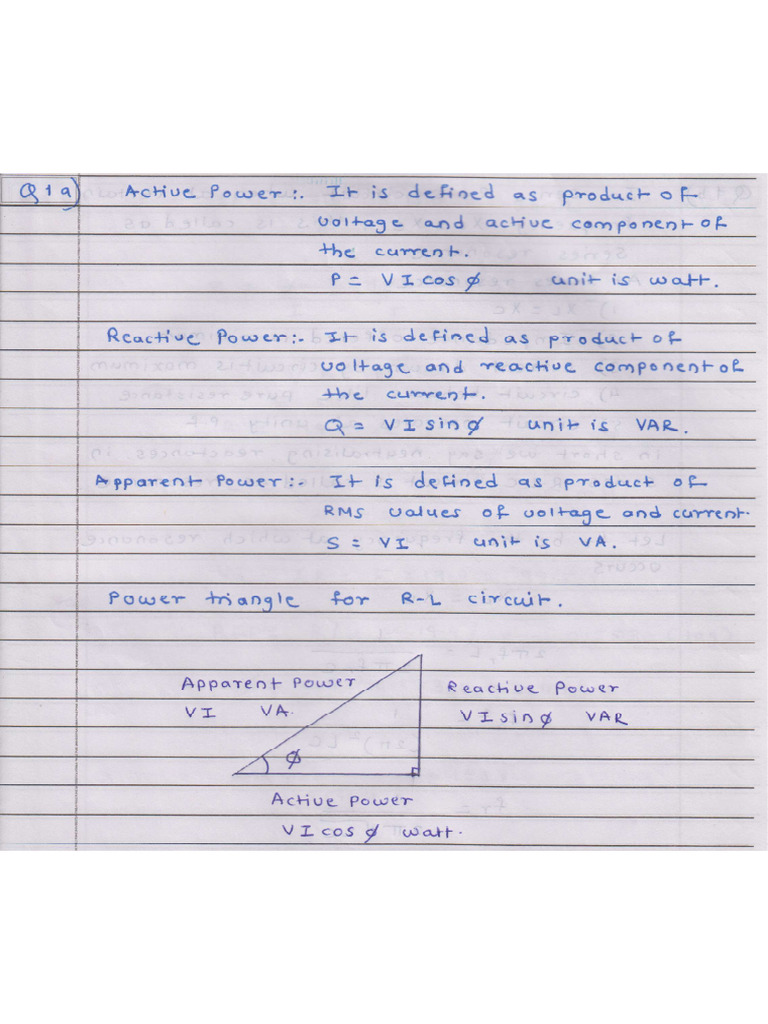 Q 1 a) Active Power:- It is defined as product of
voltage and active component of
the current.
P = VI cos ϕ unit is watt.
Reactive Power:- It is defined as product of
voltage and reactive component of
the current.
Q = VI sin ϕ unit is VAR.
Apparent Power:- It is defined as product of
RMS values of voltage and current.
S = VI unit is VA.
Power triangle for R-L circuit.
Apparent Power
VI VA.
Reactive Power
VI sin ϕ VAR
ϕ
Active Power
VI cos ϕ watt.